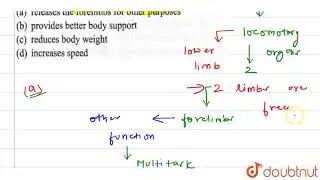 (a) releases the forelimbs for other purposes
(b) provides better body support
(c) reduces body weight
(d) increases speed
(a)
locomotory
lower organs
limb 2
2 limbs are
free
other ← forelimbs
function
Multitask
doubtnut